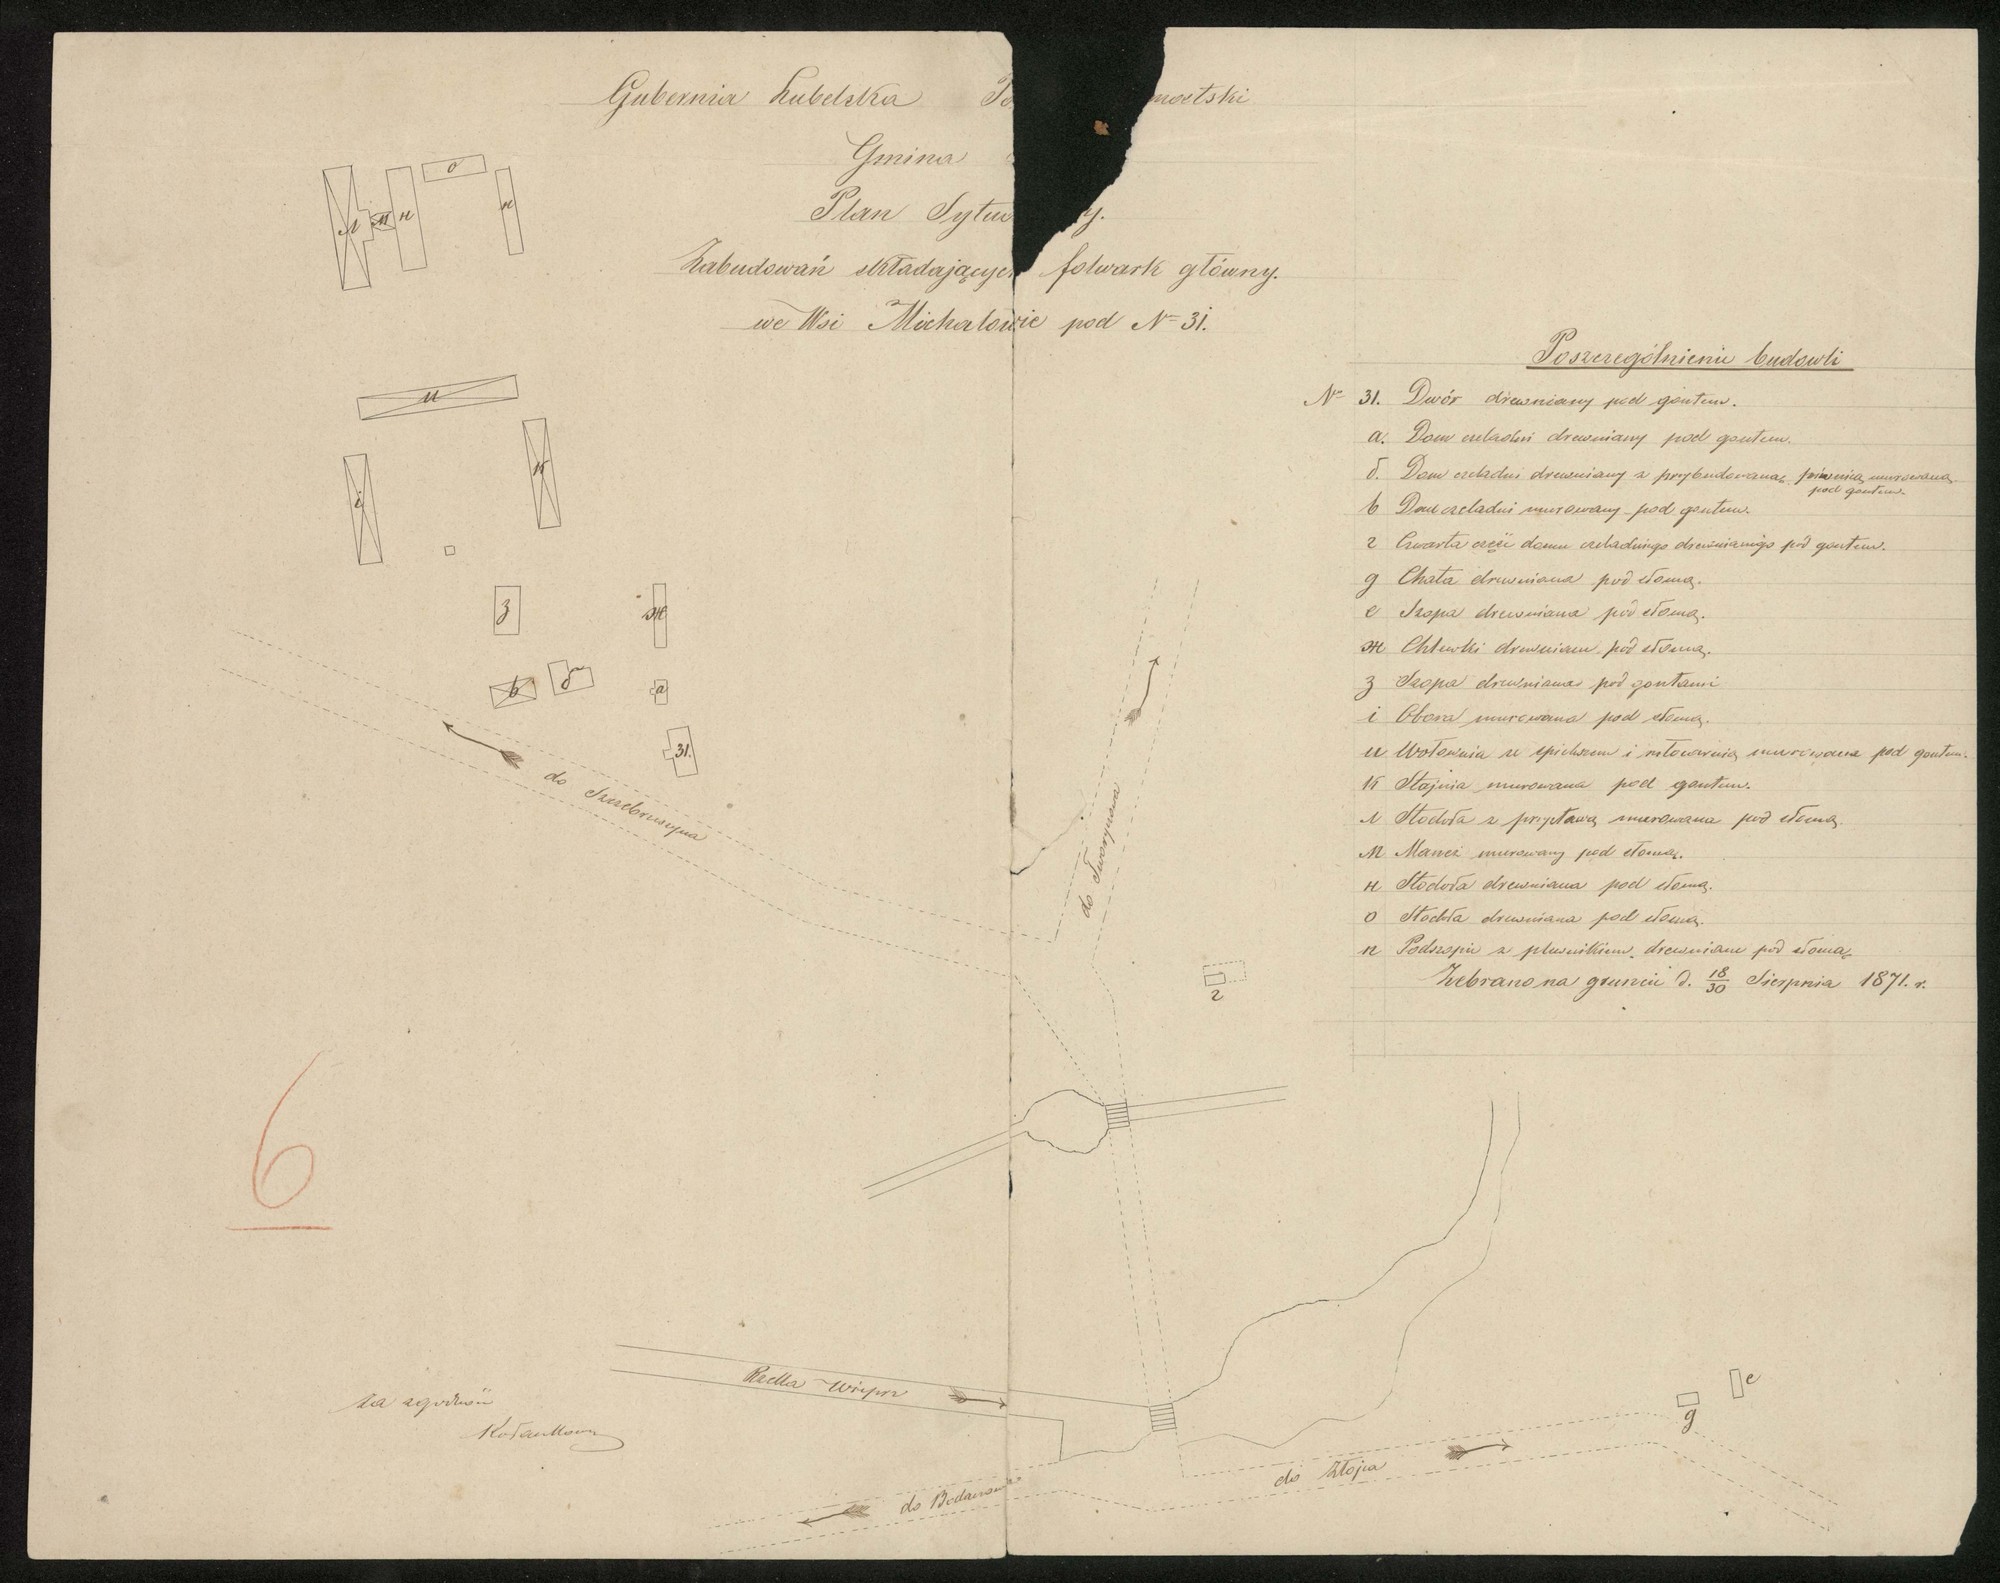 Gubernia Lubelska Po mojski
Gmina
Plan Sytua y.
Zabudowań składających folwark główny.
we Wsi Michalowie pod № 31.
Poszczególnienie budowli
№ 31. Dwór drewniany pod gontem.
a. Dom czeladni drewniany pod gontem.
б. Dom czeladni drewniany z przybudowaną piwnicą murowaną pod gontem.
в Dom czeladni murowany pod gontem.
г Czwarta część domu czeladniego drewnianego pod gontem.
g Chata drewniana pod słomą.
e Szopa drewniana pod słomą.
ж Chlewki drewniane pod słomą.
з Szopa drewniana pod gontami
i Obora murowana pod słomą.
и Wołownia ze spichrzem i młocarnią murowana pod gontem.
к Stajnia murowana pod gontem.
л Stodoła z przystawą murowana pod słomą.
м Maneż murowany pod słomą.
н Stodoła drewniana pod słomą.
o Stodoła drewniana pod słomą.
п Podszopie z plewnikiem drewniane pod słomą
Zebrano na gruncie d. 18/30 Sierpnia 1871. r.
o
л м н п
и
к
i
з ж
в б a
31.
do Szczebrzeszyna
do Tworyczowa
г
6
Rzeka Wieprz
za zgodność
e
g
do Złojca
do Bodaczowa